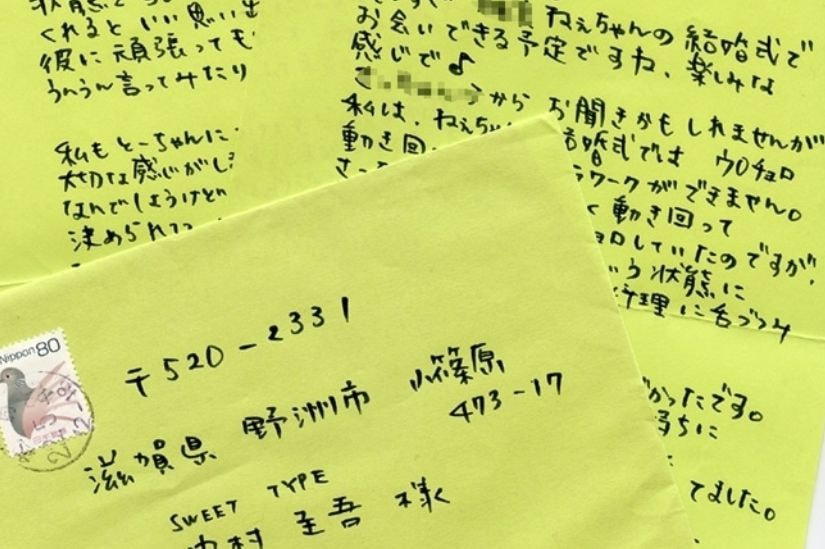 くれるといい思い出
彼に頑張っても
うんうん言ってみたり
私もとーちゃんに
大切な感じがし
なんでしょうけど
決められて
ねぇちゃんの結婚式で
お会いできる予定ですね、楽しみな
感じで♪
うから お聞きかもしれませんが
私は、ねぇちゃ
婚式では ウロチョロ
動き回
ラワークができません。
く動き回って
ョロしていたのですが、
いう状態に
料理に舌づつみ
かったです。
持ちに
てました。
Nippon 80
〒520-2331
滋賀県 野洲市 小篠原
473-17
SWEET TYPE
中村 至吾 様